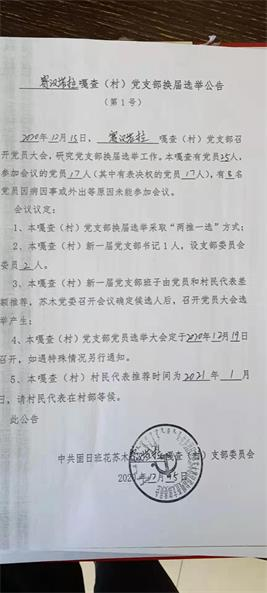 赛汉塔拉嘎查（村）党支部换届选举公告
（第1号）
2020年12月15日，赛汉塔拉嘎查（村）党支部召
开党员大会，研究党支部换届选举工作。本嘎查有党员25人，
参加会议的党员17人（其中有表决权的党员17人），有8名
党员因病因事或外出等原因未能参加会议。
会议议定：
1、本嘎查（村）党支部换届选举采取“两推一选”方式；
2、本嘎查（村）新一届党支部书记1人，设支部委员会
委员2人。
3、本嘎查（村）新一届党支部班子由党员和村民代表差
额推荐，苏木党委召开会议确定候选人后，召开党员大会选
举产生；
4、本嘎查（村）党支部党员选举大会定于2020年12月19日
召开，如遇特殊情况另行通知。
5、本嘎查（村）村民代表推荐时间为2021年1月
日，请村民代表在村部等候。
此公告
中共固日班花苏木嘎查（村）支部委员会
12月15日